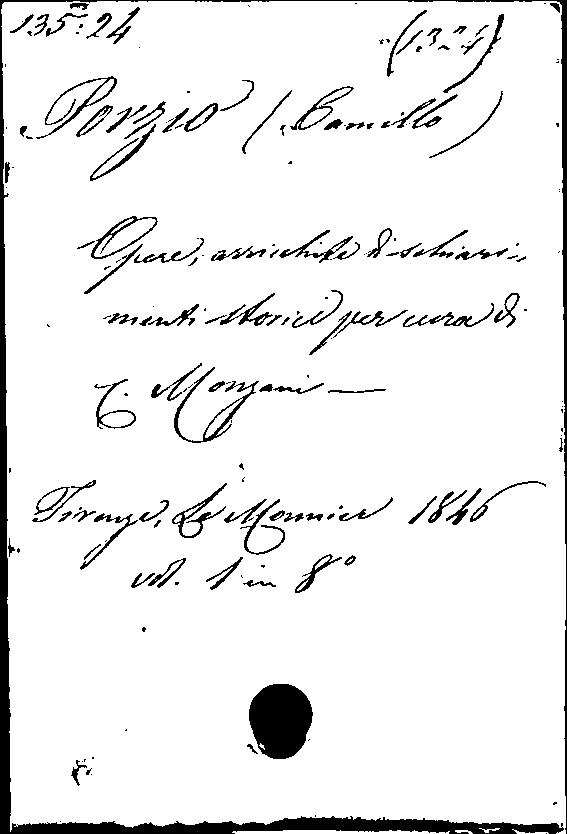 135: 24
(1324)
Porzio (Camillo)
Opere, arricchite di schiari-
menti storici per cura di
C. Monzani —
Firenze, Le Monnier 1846
vol. 1 in 8°